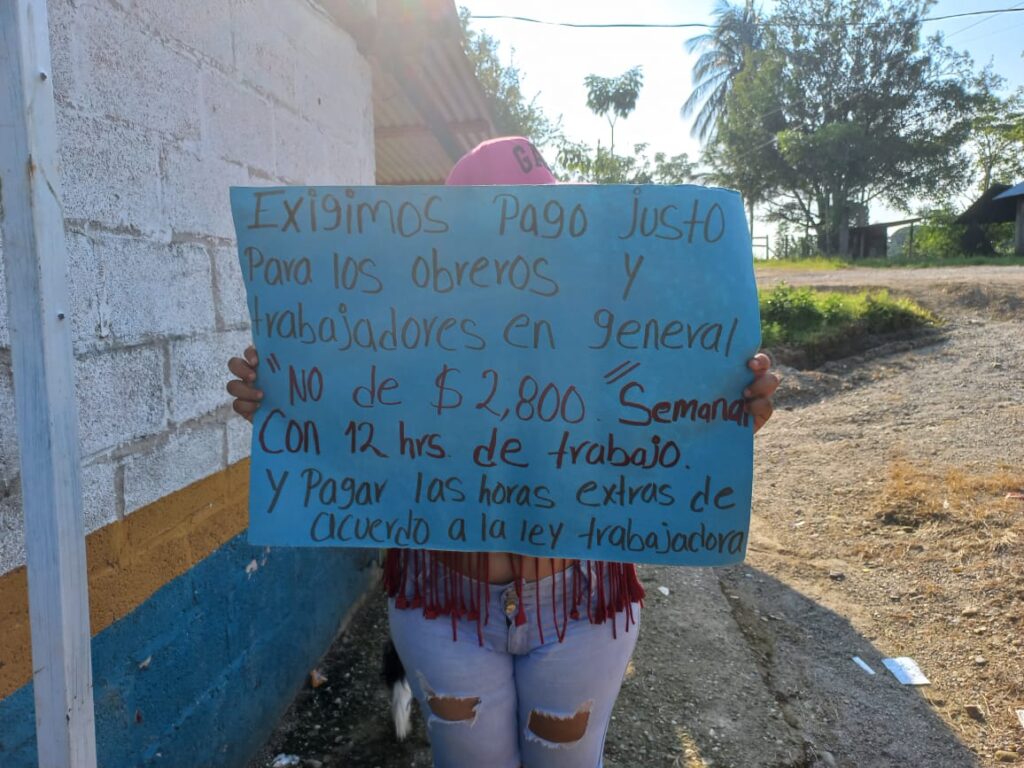 GA
Exigimos Pago justo
Para los obreros y
trabajadores en general
"NO de $2,800." Semanal
Con 12 hrs. de trabajo.
y Pagar las horas extras de
acuerdo a la ley trabajadora